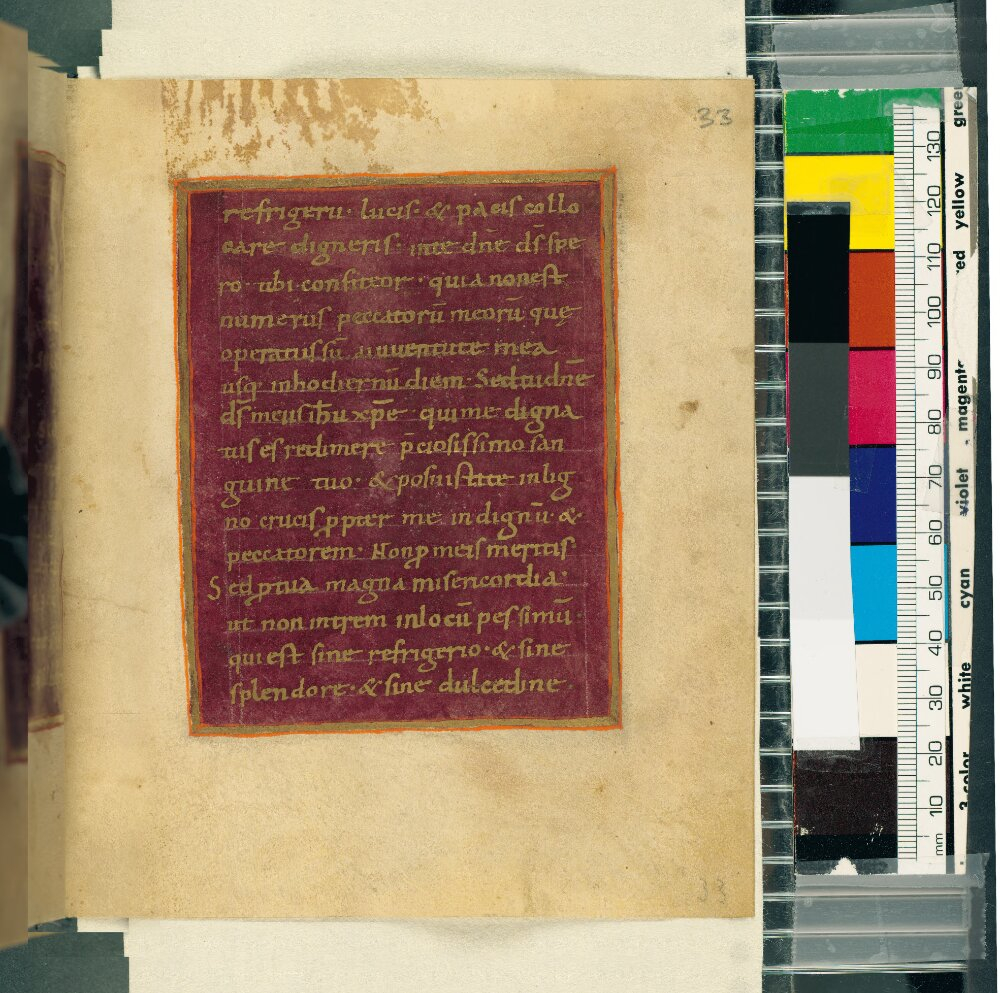 33
refrigerii· lucis· & pacis collo
care digneris· inte dn̄e ds̄ spe
ro· tibi confiteor· quia nonest
numerus peccatorū meorū quę
operatus sū aiuuentute mea
usq; inhodiernū diem· Sedtudn̄e
ds̄ meus ih̄u xp̄e· quime digna
tus es redimere p̄ciosissimo san
guine tuo· & posuisti te inlig
no crucis ꝓpter me indignū &
peccatorem· Nonꝓ meis meritis·
Sed ꝓ tua magna misericordia·
ut non intrem inlocū pessimū·
qui est sine refrigerio· & sine
splendore· & sine dulcedine·
33
green
yellow
red
magenta
violet
cyan
white
3-color
130
120
110
100
90
80
70
60
50
40
30
20
10
mm